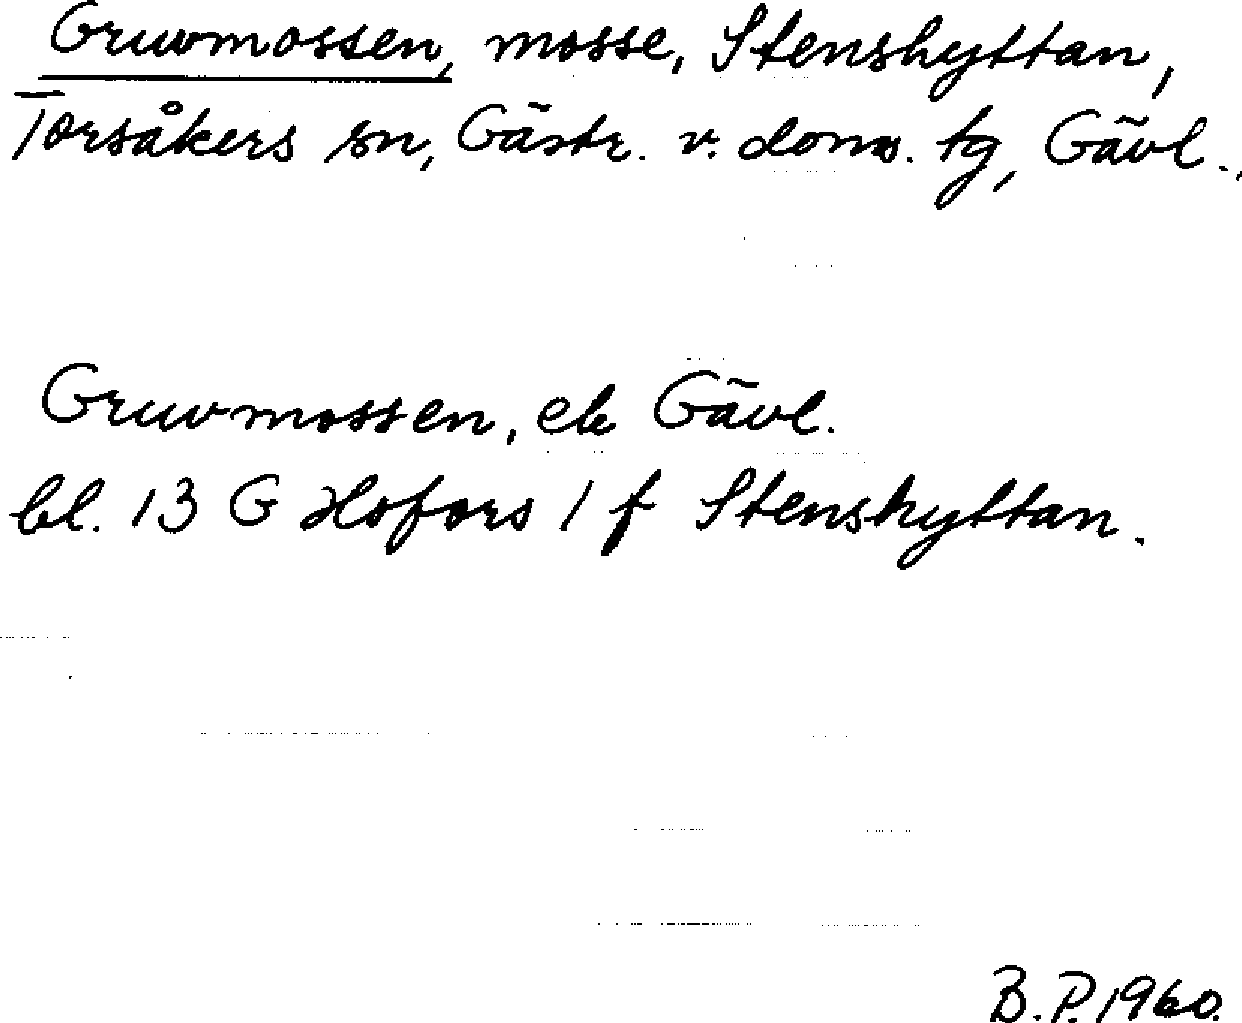 Gruvmossen, mosse, Stenshyttan,
Torsåkers sn, Gästr. v. doms. tg, Gävl..
Gruvmossen, ek Gävl.
bl. 13 G Hofors 1 f Stenshyttan.
B.P. 1960.